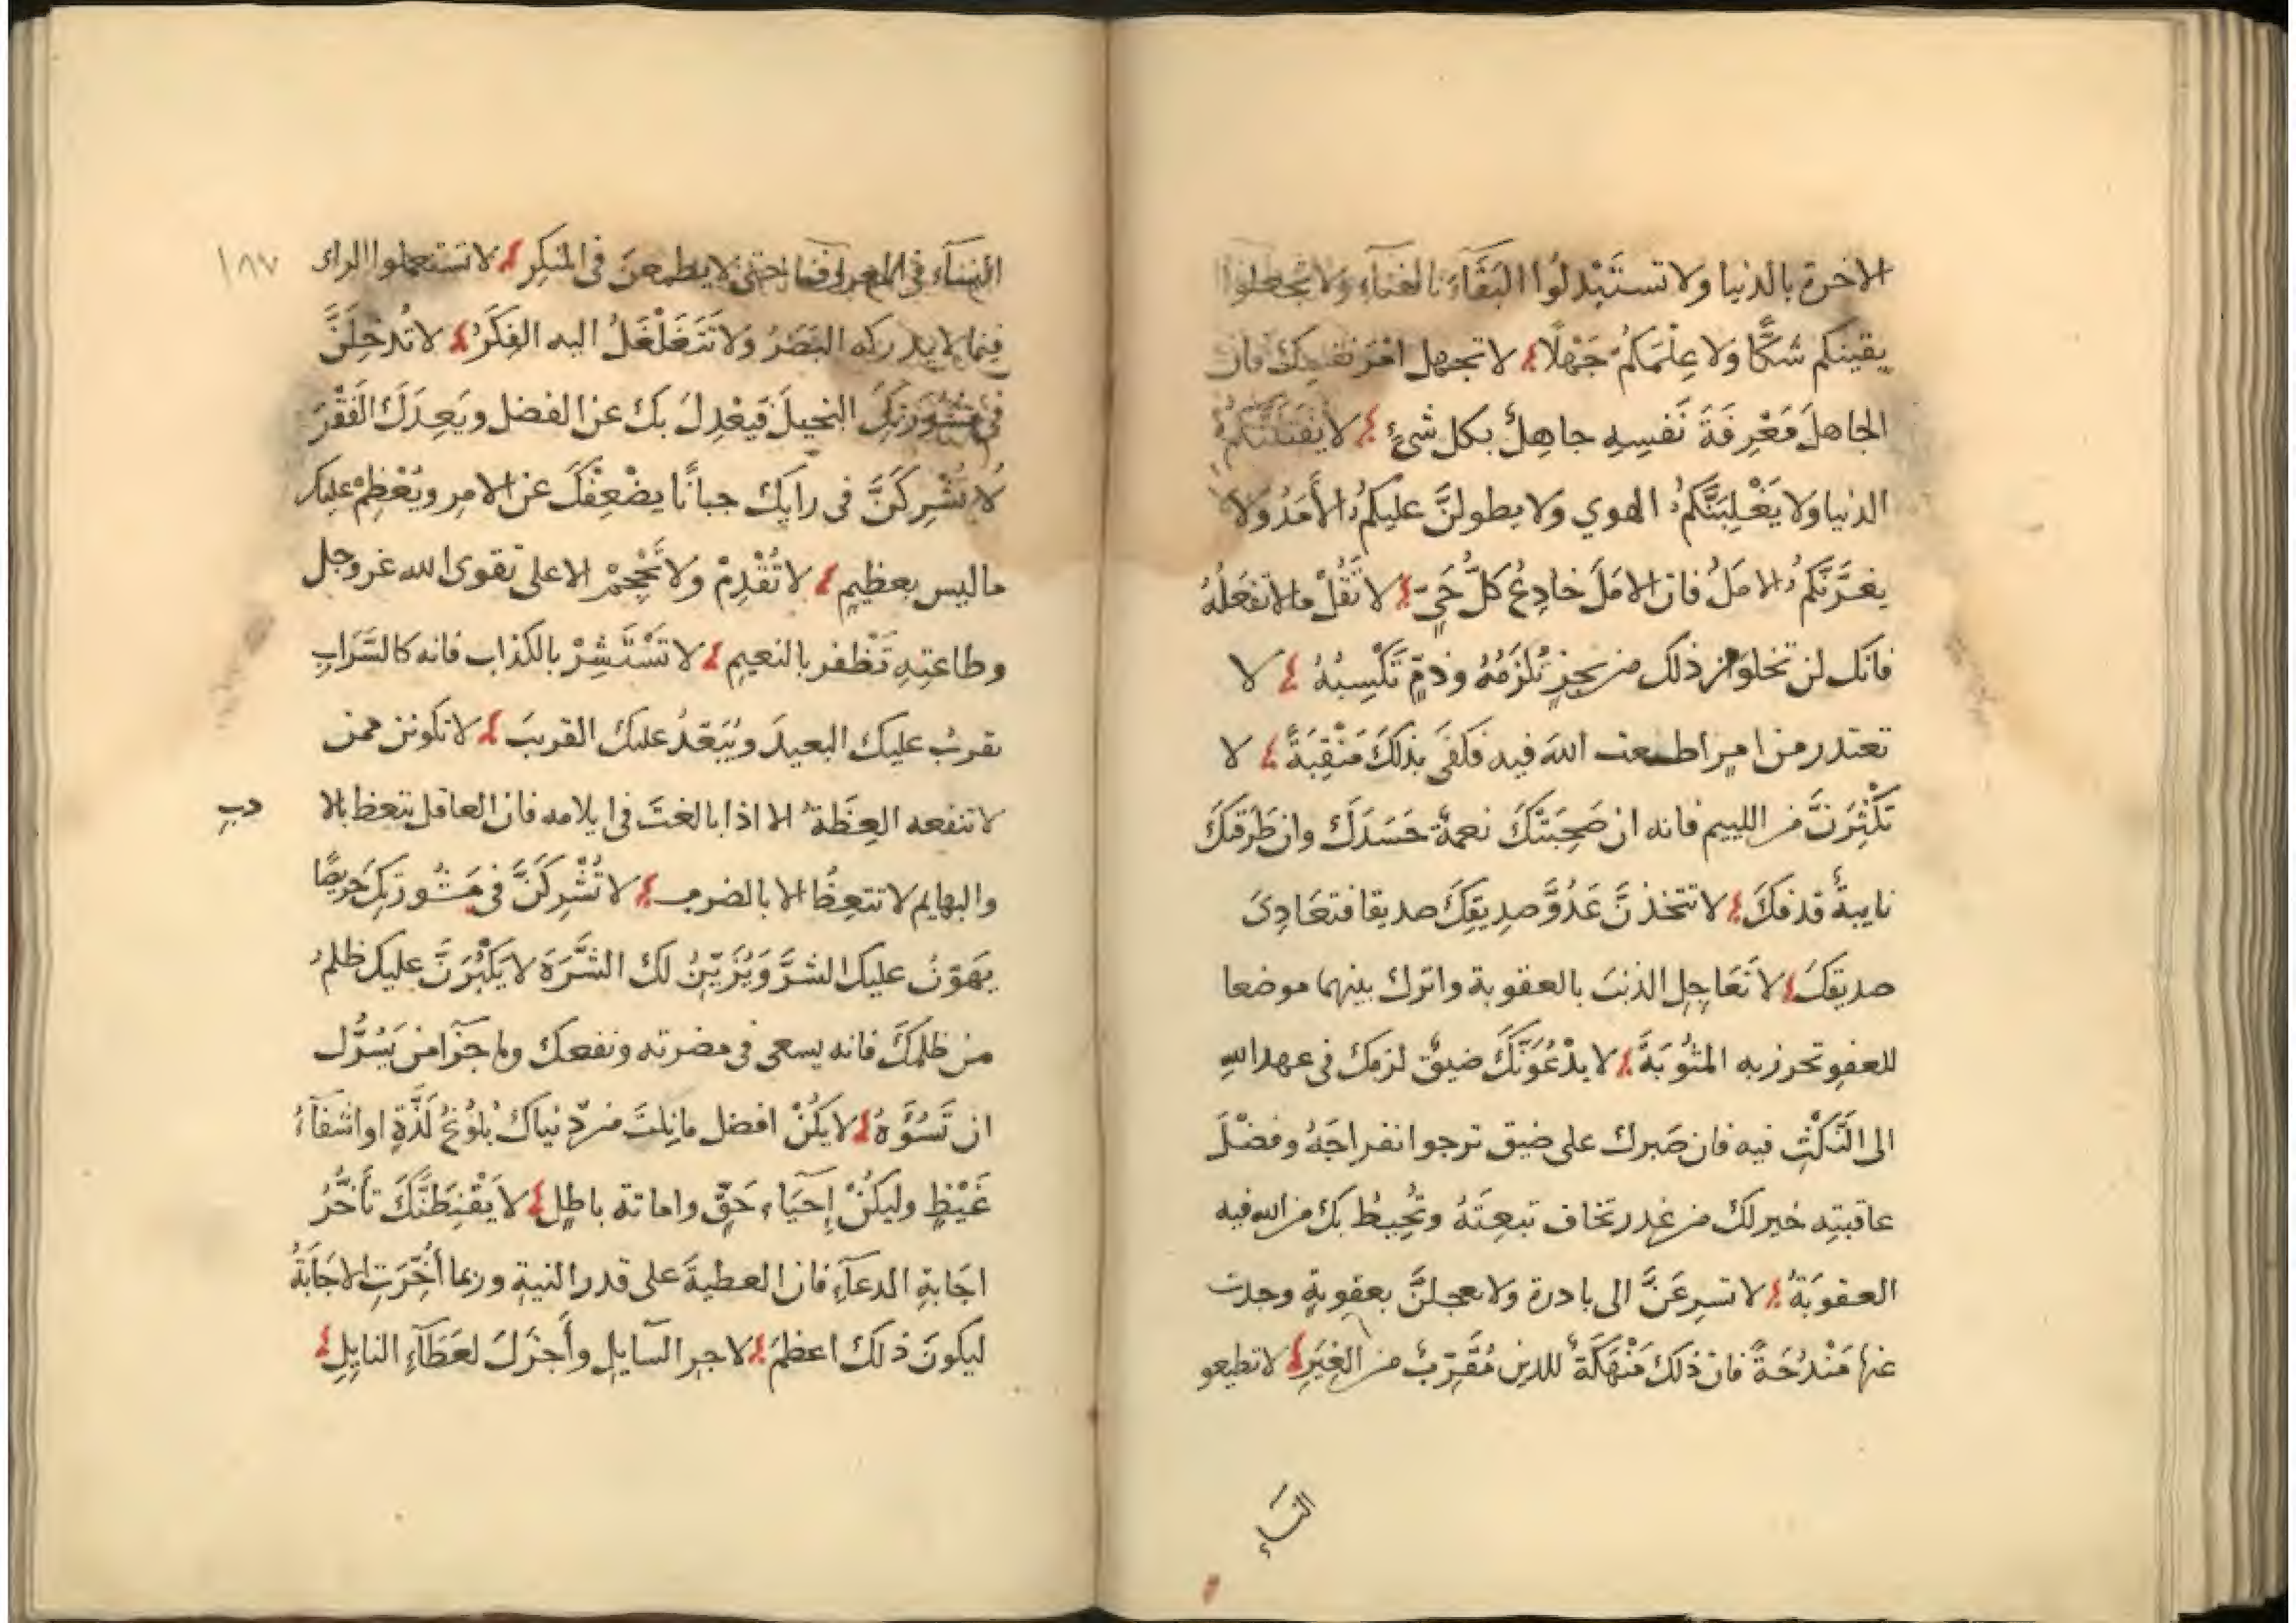 الاخرة بالدنيا ولا تستَبْدِلُوا البَقَاءَ بالفناءِ ولا تجعلوا
يقينكم شكًّا ولا عِلْمَكمُ جَهْلًا لا تجهل نفسك فان
الجاهلَ مَعْرِفَةَ نَفسِهِ جاهِلٌ بكل شئٍ لا يَفْتِنَنَّكمُ
الدنيا ولا يَغْلِبَنَّكمُ الهوي ولا يطولنَّ عليكمُ الأَمَدُ ولا
يغرَّنَّكمُ الامَلُ فان الامَلَ خادِعُ كلِّ حَيٍّ لا تَقُلْ مالا تَفعَلُهُ
فانك لن تخلو من ذلك من عجزٍ تُلْزَمُهُ وذمٍّ تَكْسِبُهُ لا
تعتذر من امرٍ اطعت اللهَ فيه فكفَى بذلكَ مَنْقِبَةً لا
تَكْثِرَنَّ من الليىم فانه ان صَحِبَتْكَ نعمةٌ حَسَدَكَ وان طَرَقتكَ
نايبةٌ قذفكَ لا تتخذنَّ عَدُوَّ صديقِكَ صديقا فتعَادِىَ
صديقكَ لا تُعَاجِلِ الذنبَ بالعقوبة واترك بينهما موضعا
للعفوِ تحرز به المثُوبَةَ لا يدْعُوَنَّكَ ضيقٌ لزمك فى عهد اللهِ
الى النَّكْثِ فيه فان صَبرك على ضيق ترجوا انفراجَهُ وفضْلَ
عاقبتِه خير لك من غدر تخاف تبعتَهُ وتُحِيطُ بك من الله فيه
العقوبَةُ لا تسرِعَنَّ الى بادرة ولا تعجلنَّ بعقوبةٍ وجدت
عنها مَنْدُحَةً فان ذلك مَنْهَكَةٌ للدين مُقَرِّبٌ من الغِيَرِ لا تطيعو
النساءِ
١٨٧
النسآء فى المعروف حتى لا يطمعنَ فى المنكِرِ لا تستعملوا الراى
فيما لا يدركه البَصَرُ ولا تَتَغَلْغَلُ اليه الفِكَرُ لا تُدخِلَنَّ
فى مشورتِكَ البخيلَ فَيعْدِلَ بكَ عن الفضل ويَعِدَكَ الفَقْرَ
لا تُشْرِكَنَّ فى رايك جبانًا يضْعِفْكَ عن الامر ويُعْظِمْ عليك
ما ليس بعظيمٍ لا تُقْدِمْ ولا تُحْجِمْ الا على تقوى الله عز وجل
وطاعتِهِ تَظفر بالنعيمِ لا تَسْتَشِرْ بالكذاب فانه كالسَّرَابِ
يقربُ عليك البعيدَ ويُبَعّدُ عليك القريبَ لا تكونن ممن
لا تنفعه العِظَةُ الا اذا بالغتَ فى ايلامه فان العاقل يتعظ بالا
دبِ
والبهايم لا تتعِظُ الا بالضرب لا تُشْرِكَنَّ فى مَشُورَتِكَ حَرِيصًا
يهَوّنُ عليك الشرَّ وَيُزَيّنُ لك الشَّرَهَ لا يَكْبُرَنَّ عليك ظلمُ
من ظلمَكَ فانه يسعى فى مضرته ونفعك وما جزآ من يَسُرُّك
ان تَسُوَّهُ لا يَكُنْ افضل ما نِلتَ من دنياكَ بُلوُغُ لَذَّةٍ او اشفآءُ
غَيْظٍ وليكُنْ إِحيَاءِ حَقٍّ واماتة باطِلٍ لا يَقْنِطَنَّكَ تأَخُّرُ
اجَابةِ الدعآءِ فان العطيةَ على قدر النيةِ وربما أُخِّرَتِ الاجَابَةُ
ليكونَ ذلك اعظمَ لاجرِ السآيلِ وأَجزَلَ لعَطَآءِ النايِلِ